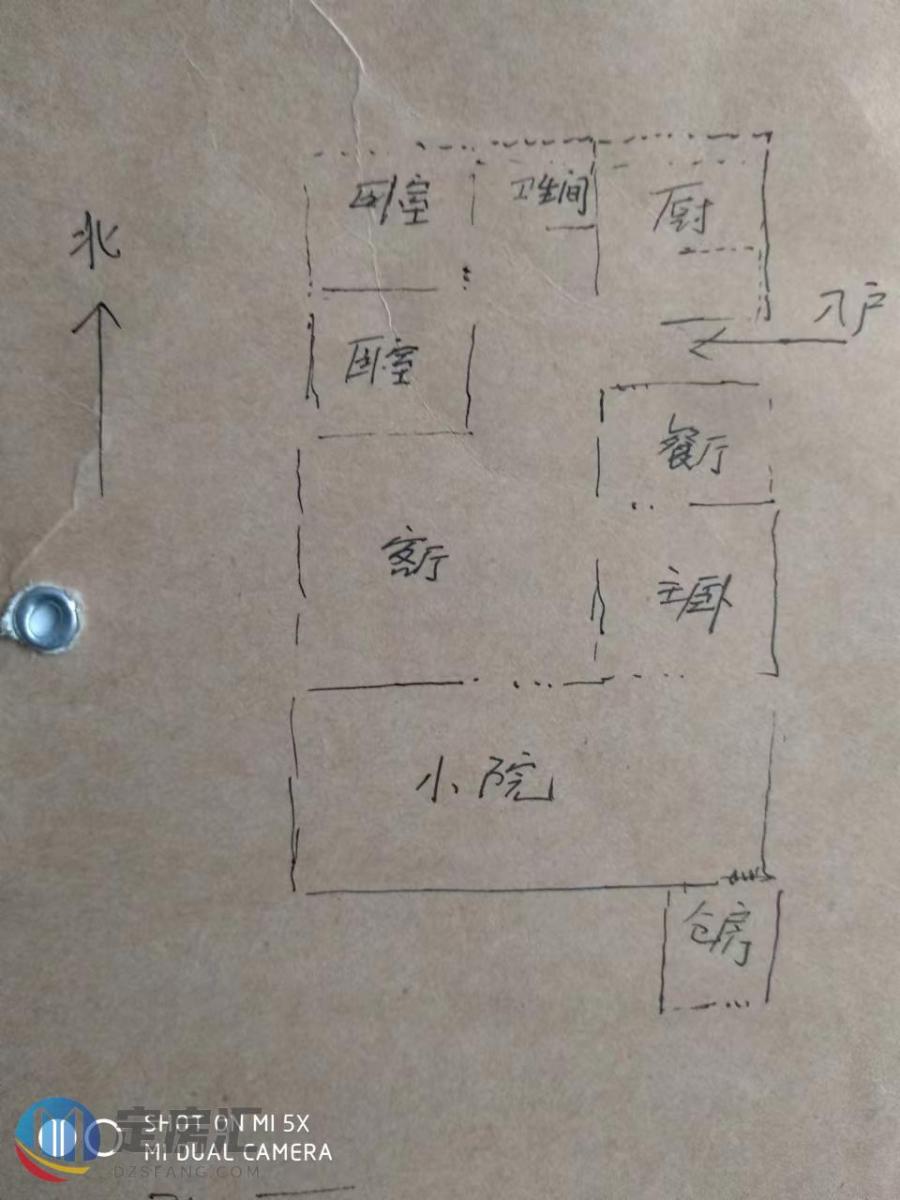 卧室
卫生间
厨
北
入户
卧室
餐厅
客厅
主卧
小院
仓房
定房汇
DZSFANG.COM
SHOT ON MI 5X
MI DUAL CAMERA